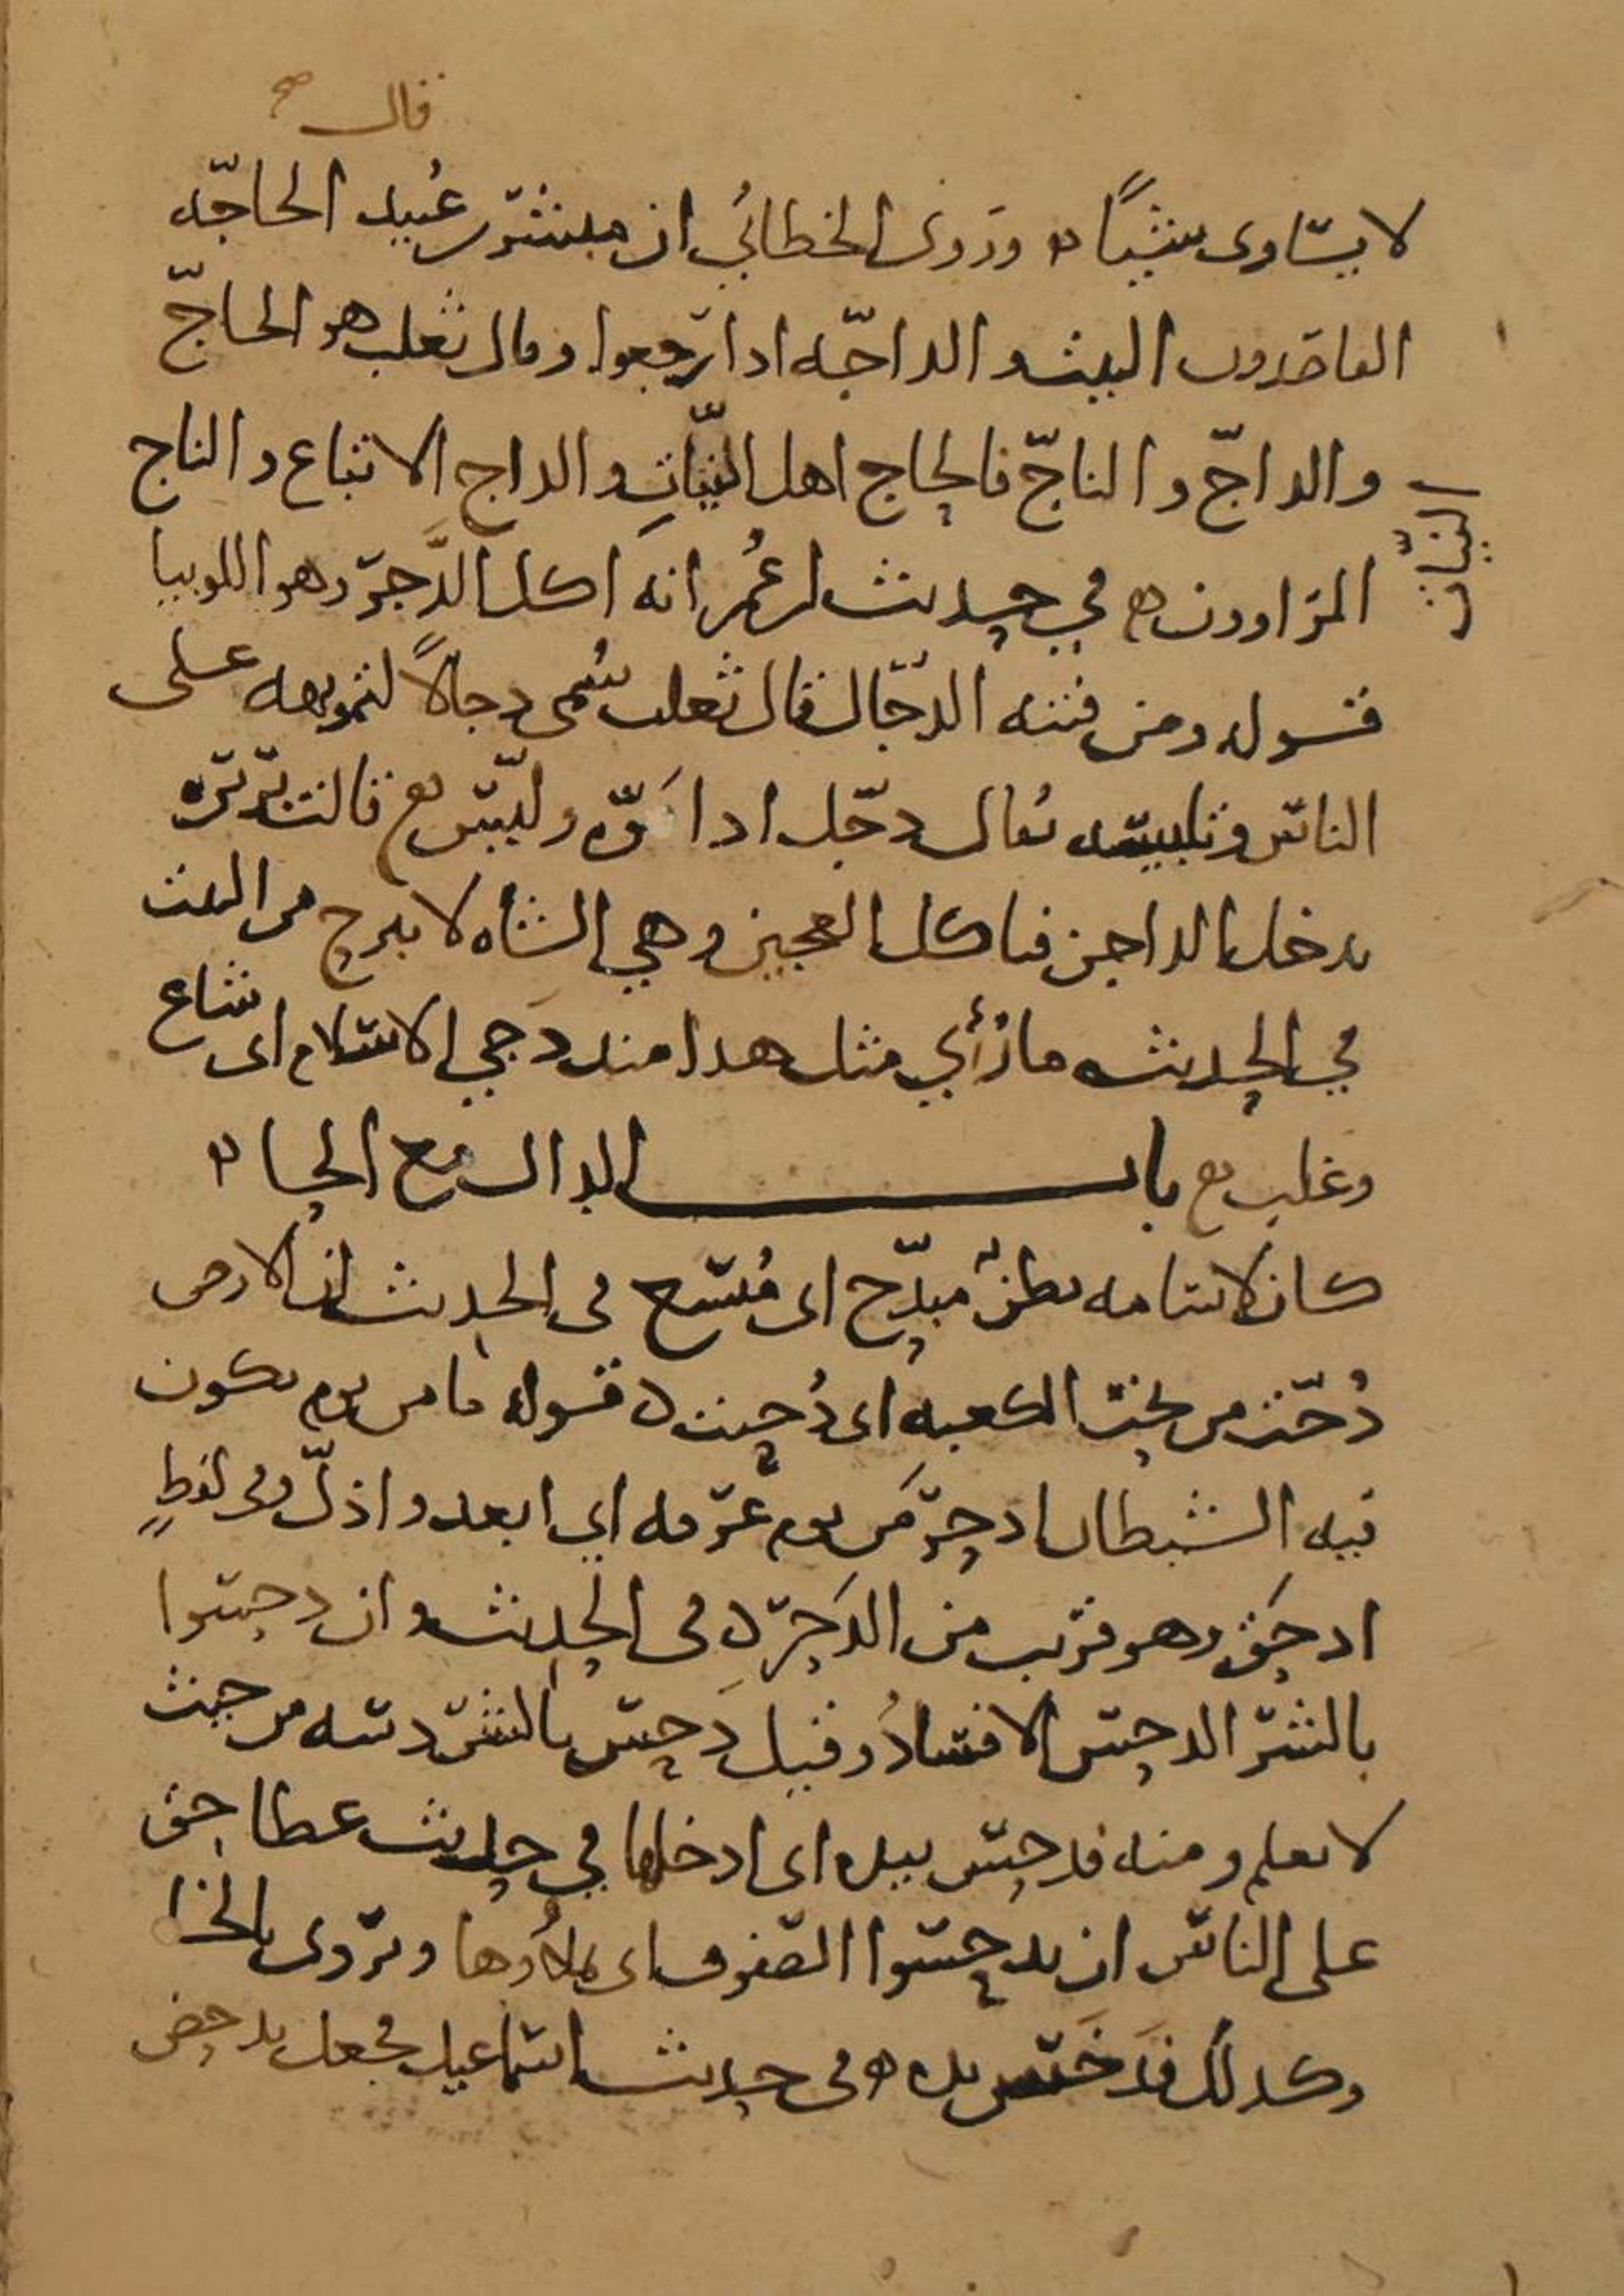 قال صح
لا يساوى شيئًا ۞ وروى الخطابي ان مبشر عُبيد الحاجّه
القاصدون البيت والداجّه اذا رجعوا وقال ثعلب هو الحاجّ
والداجّ والناجّ فالحاج اهل النيّاتِ والداج الاتباع والناج
النيّات
المراوون ۞ في حديث ابن عُمر انه اكل الدَّجر وهو اللوبيا
قوله ومن فتنه الدجّال قال ثعلب سُمى دجالاً لتمويهه على
الناس وتلبيسه يُقال دجّل اذا مَوّه ولبّس ۞ قالت بَريره
يدخل الداجن فياكل العجين وهي الشاه لا تبرح من البيت
في الحديث ما رُأي مثل هذا منذ دَجي الاسلام اى شاع
وغلب ۞ باب الدال مع الحا ۞
كان لاسامه بطنٌ مبدّح اى مُتسع فى الحديث ان الارض
دُحّت من تحت الكعبه اى دُحيت ۞ قوله ما من يوم يكون
فيه الشيطان ادحر من يوم عَرفه اي ابعد واذلّ وفى لفظٍ
ادحَق وهو قريب من الدَحر ۞ فى الحديث وان دحسوا
بالشرّ الدحس الافسادُ وقيل دَحس بالشرّ دسه من حيث
لا يعلم ومنه فدحس بيده اى ادخلها في حديث عطا حق
على الناس ان يدحسوا الصفوف اى يملأُوها ويروى بالخا
وكذلك فدَخَس يده ۞ فى حديث اسماعيل فجعل يدحض